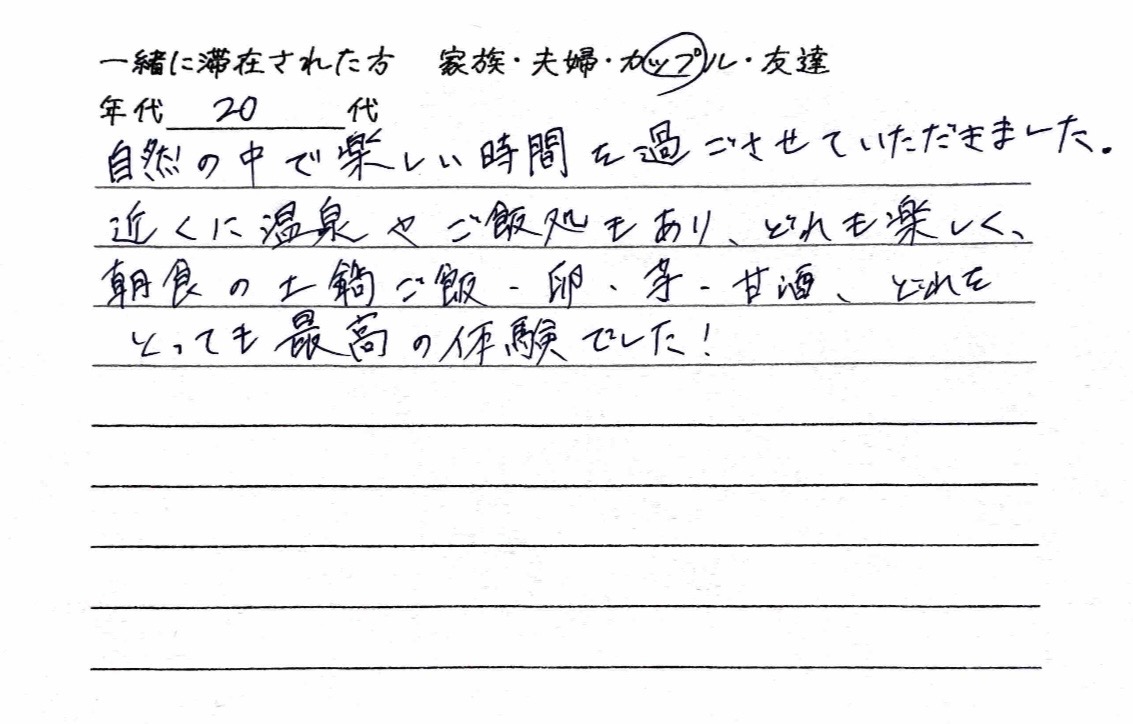 一緒に滞在された方　家族・夫婦・カップル・友達
年代 20 代
自然の中で楽しい時間を過ごさせていただきました。
近くに温泉やご飯処もあり、どれも楽しく、
朝食の土鍋ご飯・卵・芋・甘酒、どれを
とっても最高の体験でした！